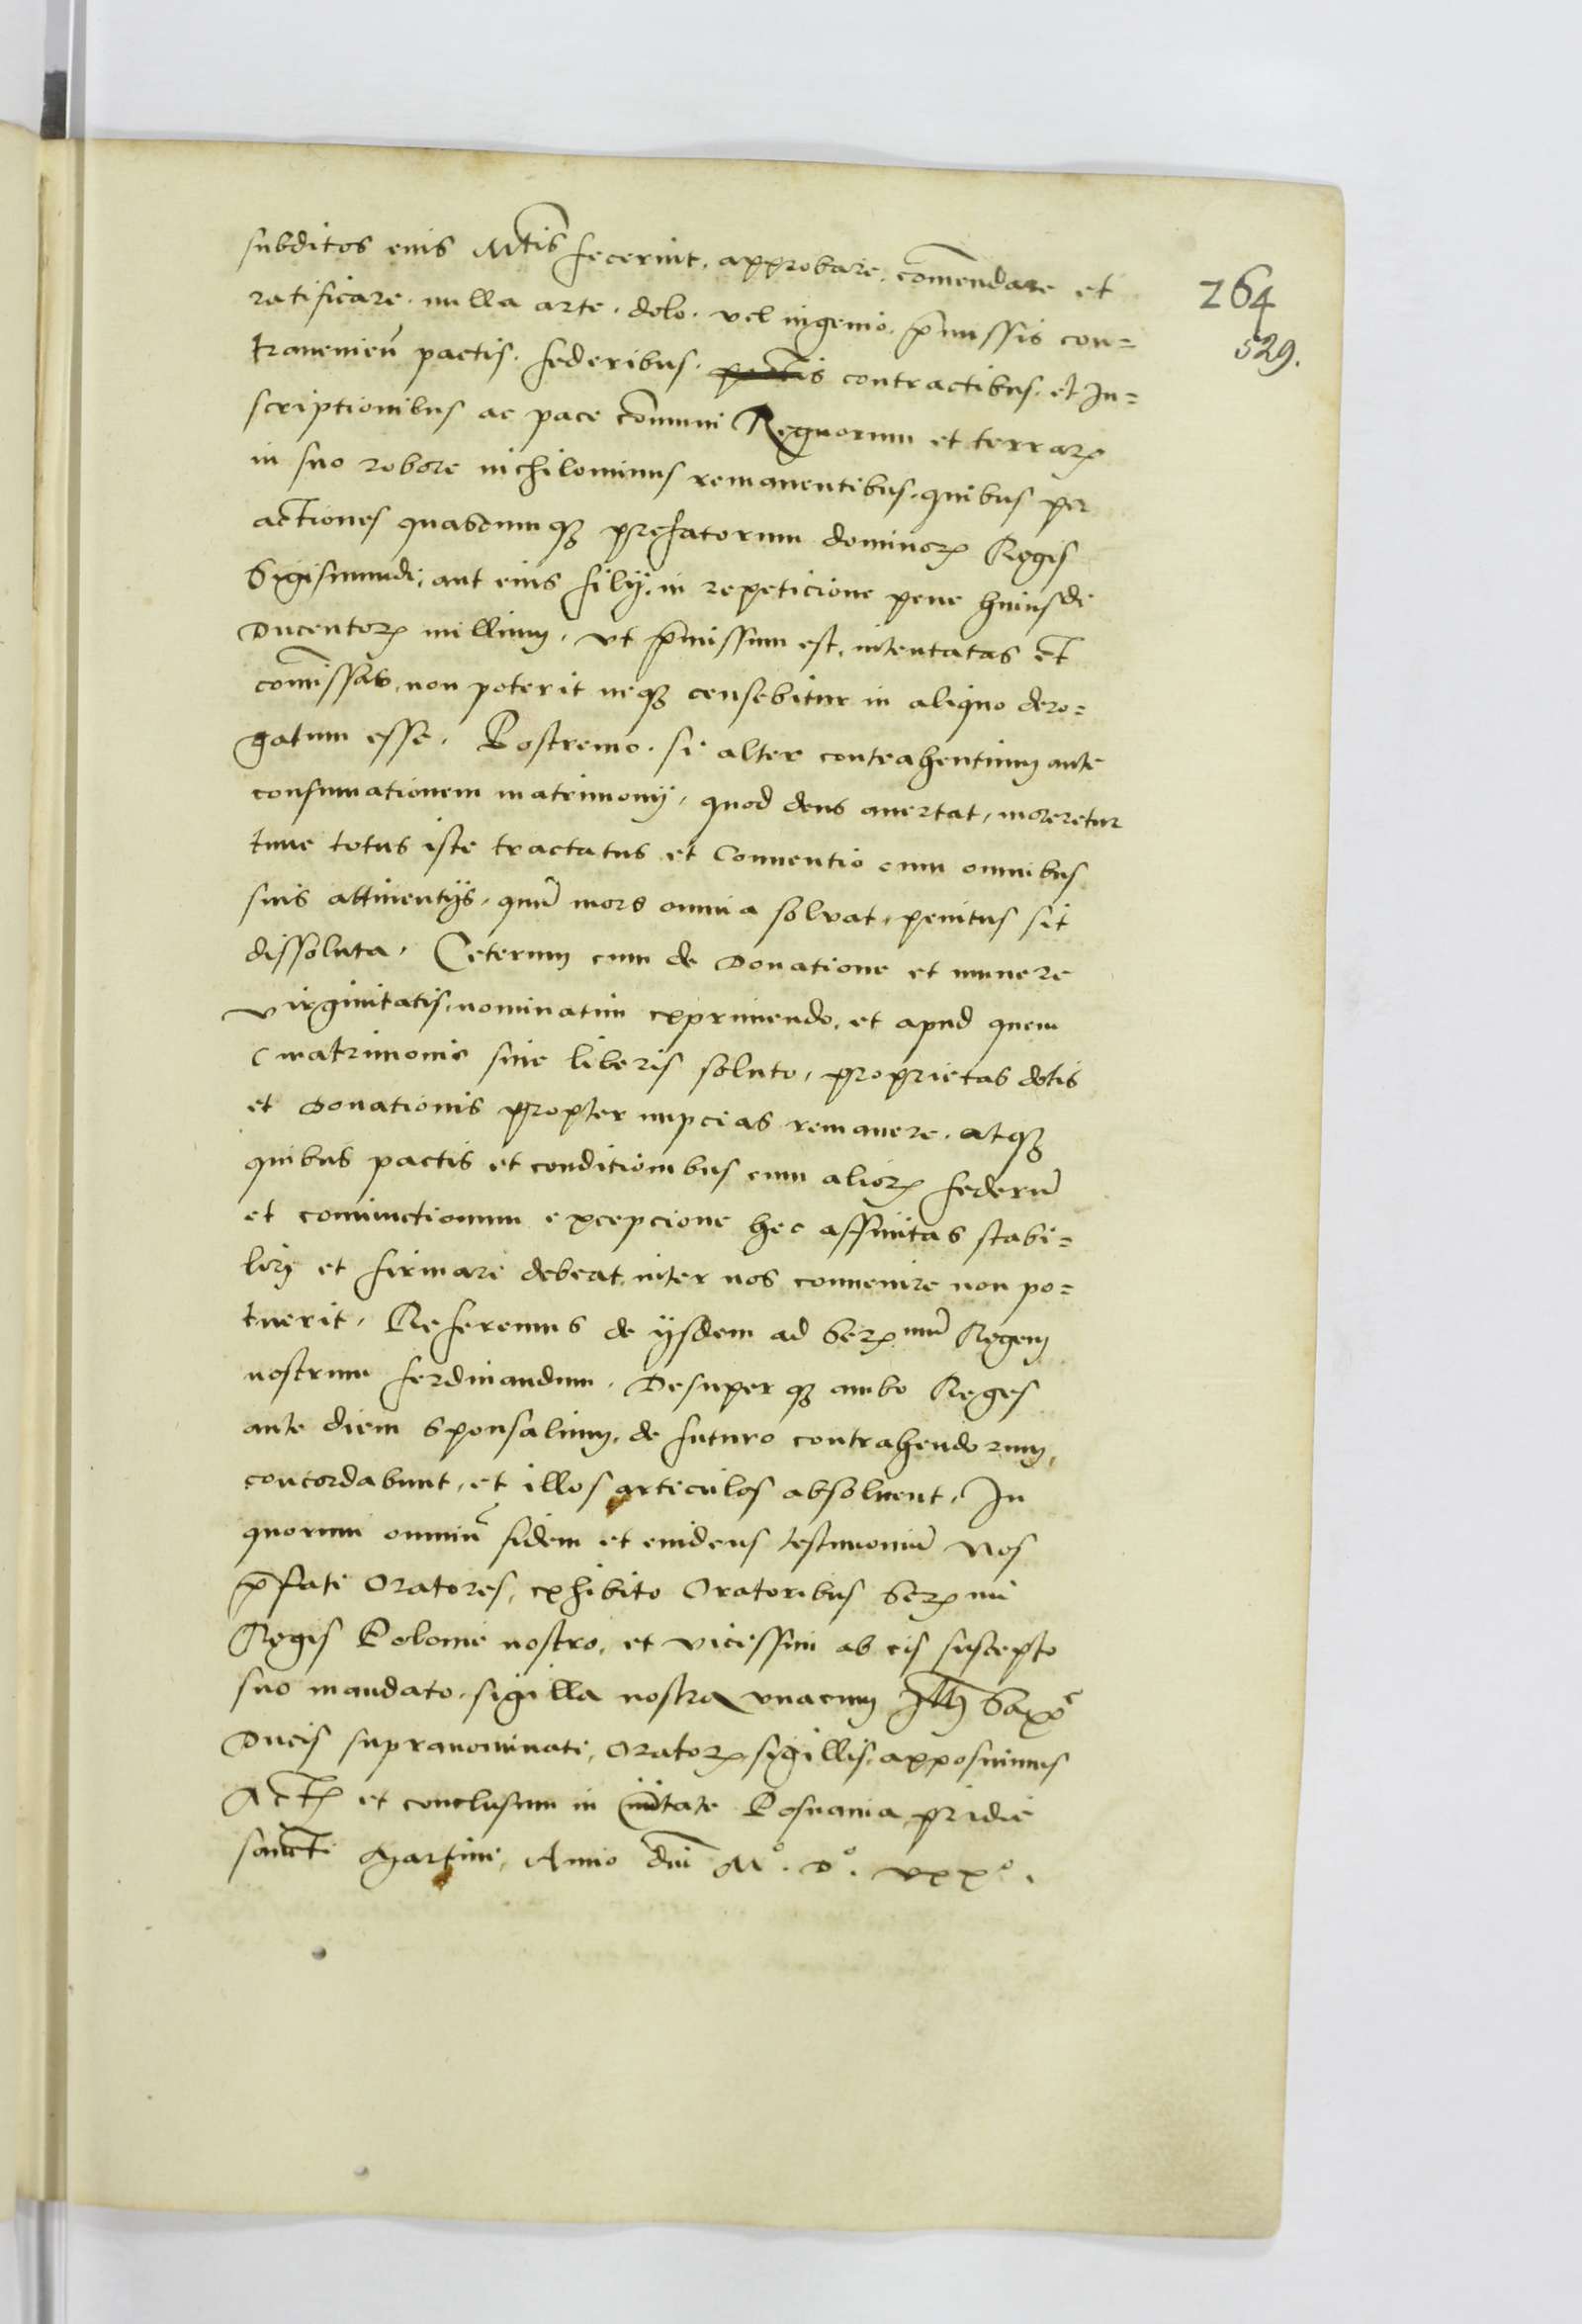 subditos eius Mtis fecerint, approbare, com̄endare et
ratificare, nulla arte, dolo, vel ingenio, p̄missis con=
trauenien̄ pactis, federibus, pactis contractibus, et In=
scriptionibus ac pace com̄uni Regnorum et terrarꝫ
in suo robore nichilominus remanentibus, quibus per
actiones quascumqꝫ prefatorum dominorꝫ Regis
Sigismundi, aut eius filij, in repeticione pene huiusdi
Ducentorꝫ millium, vt p̄missum est, intentatas et
com̄issas, non poterit neqꝫ censebitur in aliquo dero=
gatum esse. Postremo, si alter contrahentium ante
consumationem matrimonij, quod deus auertat, moreretur
tunc totus iste tractatus et Conuentio cum omnibus
suis attinentijs, qum̄ mors omnia soluat, penitus sit
dissoluta. Ceterum cum de Donatione et munere
virginitatis, nominatim exprimendo, et apud quem
matrimonio sine liberis soluto, proprietas dotis
et Donationis propter nupcias remanere, atqꝫ
quibus pactis et conditionibus cum aliorꝫ federum̄
et coniunctionum excepcione hec affinitas stabi=
lirj et firmari debeat, inter nos conuenire non po=
tuerit, Referemus de ijsdem ad Serꝫ mū Regem
nostrum ferdinandum. Desuper qꝫ ambo Reges
ante diem Sponsalium, de futuro contrahendorum,
concordabunt, et illos articulos absoluent, In
quorum omniū fidem et euidens testimoniū Nos
p̄fati Oratores, exhibito Oratoribus Serꝫ mi
Regis Polonie nostro, et vicissim ab eis suscepto
suo mandato, sigilla nostra vnacum Ill Saxoe
Ducis supranominati, Oratorꝫ sigillis, apposuimus
Actꝫ et conclusum in Ciuitate Posnania, pridie
sancti Martini, Anno dn̄i Mº. Dº. xxxº.
264
529.